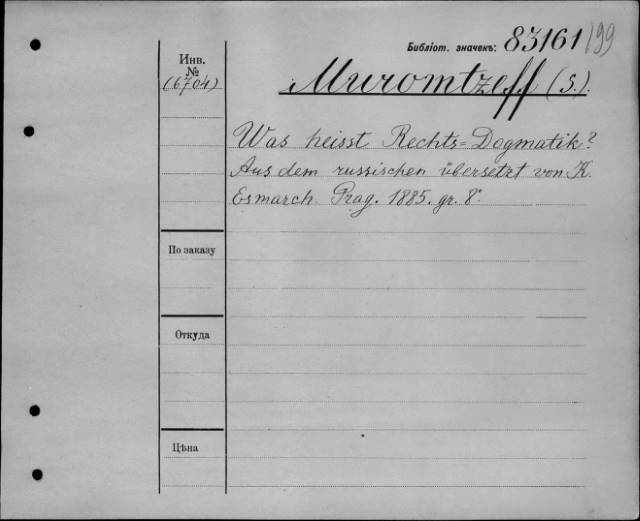 Библіот. значекъ: 83161/199
Инв.
№
(6704)
Muromtzeff (S.).
Was heisst Rechts=Dogmatik?
Aus dem russischen übersetzt von K.
Esmarch. Prag. 1885. gr. 8°.
По заказу
Откуда
Цѣна